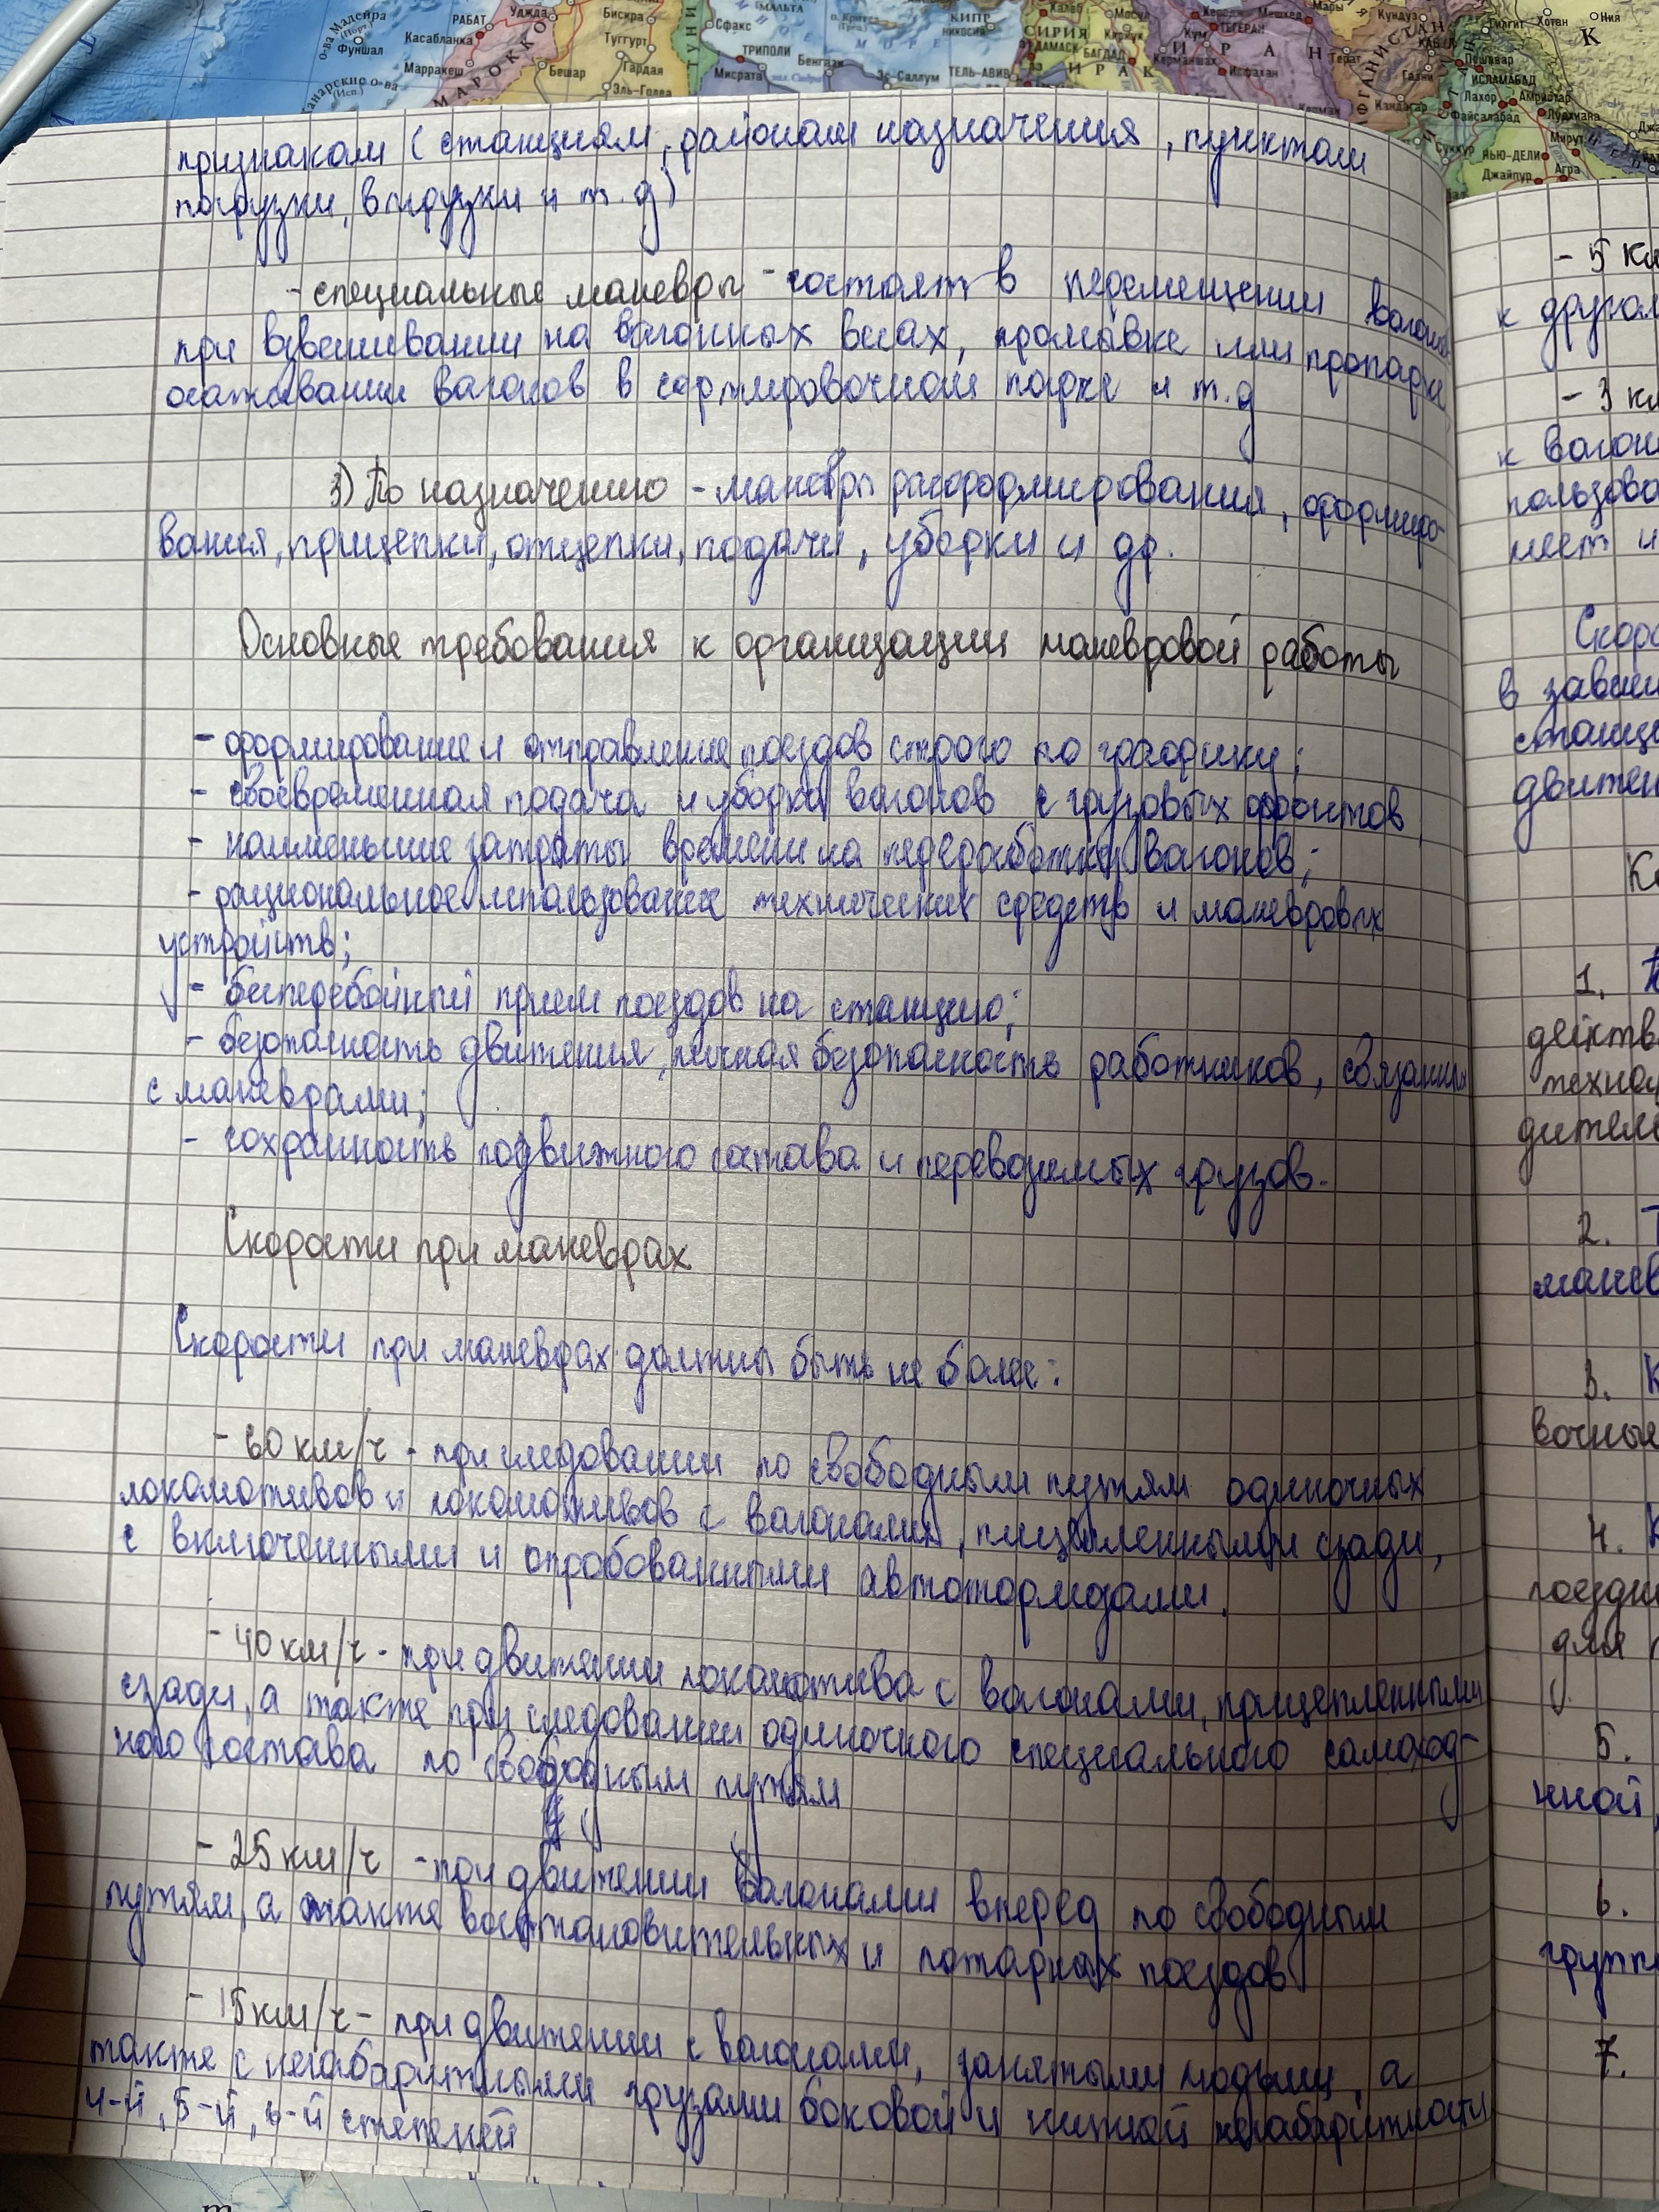 о-ва Мадейра
(Порт.)
Фуншал
РАБАТ
Касабланка
Марракеш
МАРОККО
Уджда
Бискра
Туггурт
Гардая
Бешар
Эль-Голеа
Сфакс
МАЛЬТА
ТРИПОЛИ
Мисрата
Бенгази
Эс-Саллум
КИПР
НИКОСИЯ
ТЕЛЬ-АВИВ
СИРИЯ
ДАМАСК
БАГДАД
ИРАК
Халеб
Мосул
Киркук
Керманшах
Кум
ТЕГЕРАН
ИРАН
Исфахан
Мешхед
Мары
Герат
Кундуз
КАБУЛ
Газни
Кандагар
Пешавар
ИСЛАМАБАД
Лахор
Амритсар
Фейсалабад
Лудхиана
Суккур
НЬЮ-ДЕЛИ
Мирут
Джайпур
Агра
Гилгит
Хотан
Ния
признакам (станциям, районам назначения, пунктам
погрузки, выгрузки и т.д)
- специальные маневры - состоят в перемещении вагонов
при взвешивании на вагонных весах, промывке или пропарке
осаживании вагонов в сортировочном парке и т.д
3) По назначению - маневры расформирования, формиро-
вания, прицепки, отцепки, подачи, уборки и др.
Основные требования к организации маневровой работы
- формирование и отправление поездов строго по графику;
- своевременная подача и уборка вагонов с грузовых фронтов
- наименьшие затраты времени на переработку вагонов;
- рациональное использование технических средств и маневровых
устройств;
- бесперебойный прием поездов на станцию;
- безопасность движения, личная безопасность работников, связанных
с маневрами;
- сохранность подвижного состава и перевозимых грузов.
Скорости при маневрах
Скорости при маневрах должны быть не более:
- 60 км/ч - при следовании по свободным путям одиночных
локомотивов и локомотивов с вагонами, прицепленными сзади,
с включенными и опробованными автотормозами.
- 40 км/ч - при движении локомотива с вагонами, прицепленными
сзади, а также при следовании одиночного специального самоход-
ного состава по свободным путям
- 25 км/ч - при движении вагонами вперед по свободным
путям, а также восстановительных и пожарных поездов
- 15 км/ч - при движении с вагонами, занятыми людьми, а
также с негабаритными грузами боковой и нижней негабаритности
4-й, 5-й, 6-й степеней
- 5 км
к другом
- 3 км
к вагон
пользова
меет и
Скоро
в зависи
станци
движен
1.
действ
техно
дителе
2. Т
манев
3. К
вочные
4. К
поезди
для
5.
жной,
6.
групп
7.